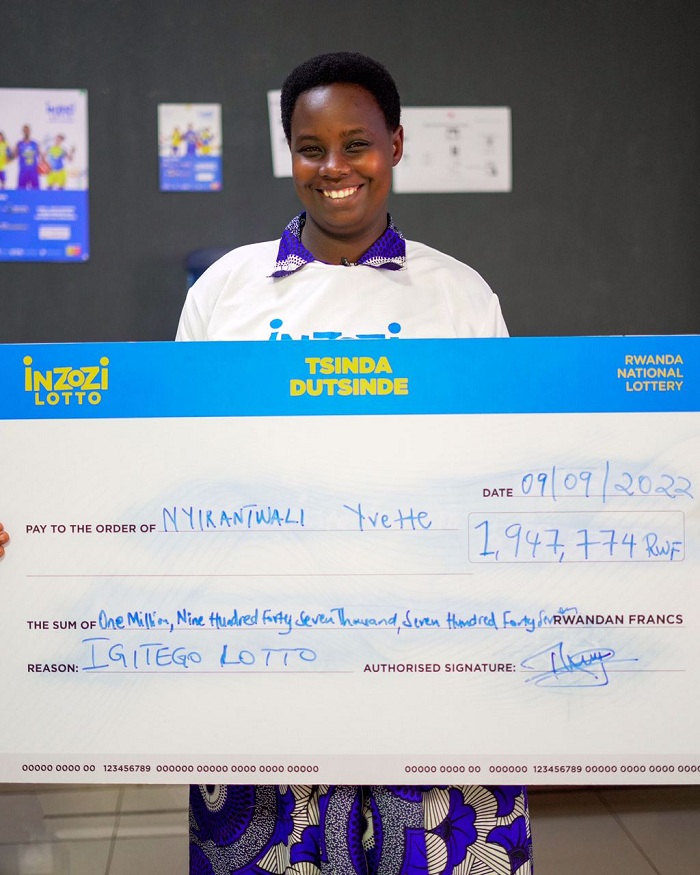 inzozi
iNZOZi
LOTTO
TSINDA
DUTSINDE
RWANDA
NATIONAL
LOTTERY
DATE 09/09/2022
PAY TO THE ORDER OF NYIRANTWALI Yvette
1,947,774 RWF
THE SUM OF One Million, Nine Hundred Forty Seven Thousand, Seven Hundred Forty Seven RWANDAN FRANCS
REASON: IGITEGO LOTTO
AUTHORISED SIGNATURE:
00000 0000 00 123456789 000000 00000 0000 0000 00000
00000 0000 00 000000 123456789 00000 0000 0000 0000